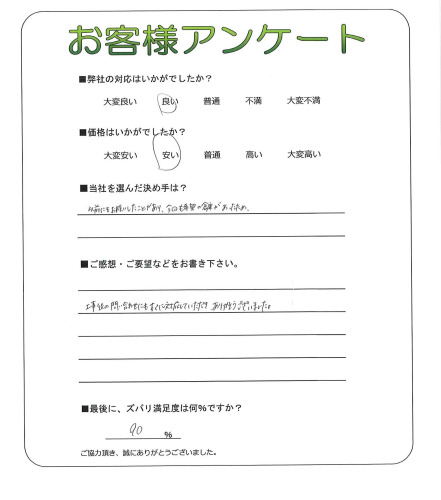 お客様アンケート
■弊社の対応はいかがでしたか?
大変良い 良い 普通 不満 大変不満
■価格はいかがでしたか?
大変安い 安い 普通 高い 大変高い
■当社を選んだ決め手は?
以前にもお願いしたことがあり、今回も希望の金額があったため。
■ご感想・ご要望などをお書き下さい。
工事後の問い合わせにもすぐに対応していただき ありがとうございました。
■最後に、ズバリ満足度は何%ですか?
90 %
ご協力頂き、誠にありがとうございました。